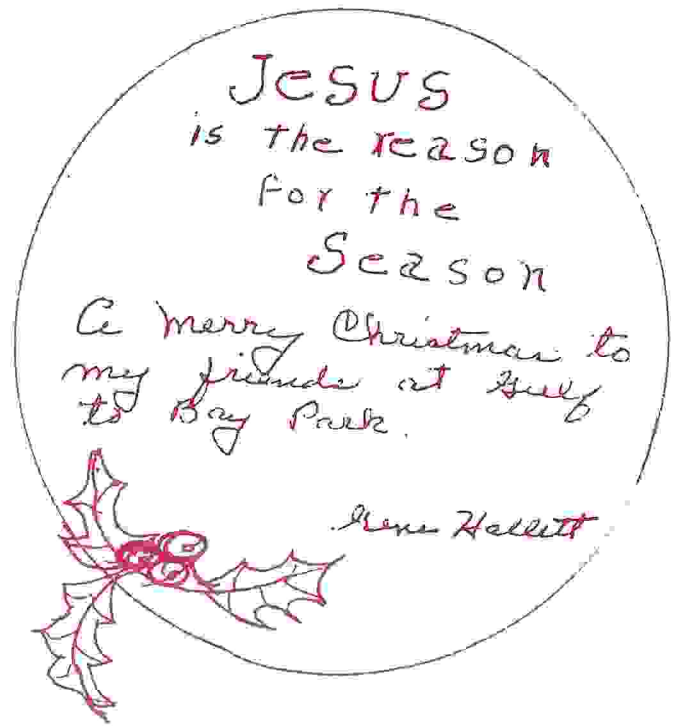 Jesus
is the reason
for the
Season
A Merry Christmas to
my friends at Gulf
to Bay Park.
Hallett